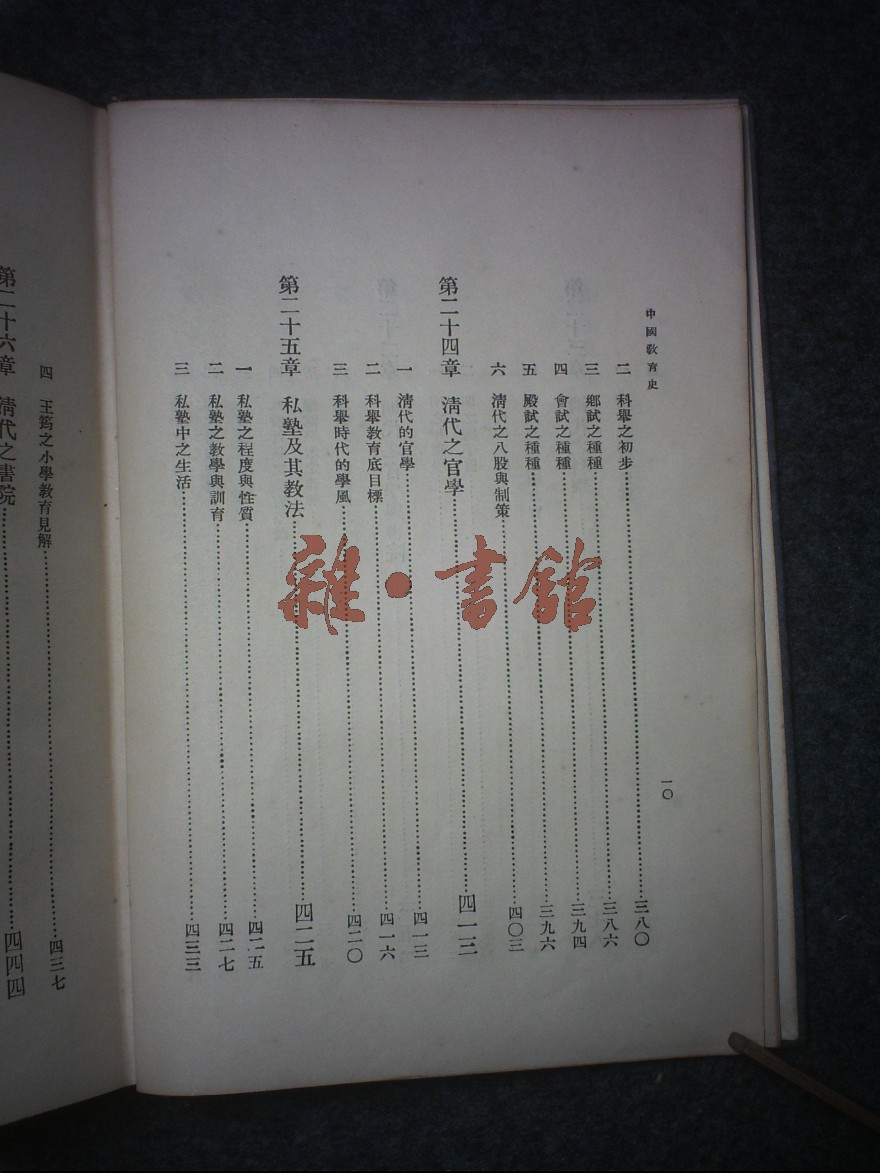 中國敎育史
一〇
二 科舉之初步……三八〇
三 鄉試之種種……三八六
四 會試之種種……三九四
五 殿試之種種……三九六
六 清代之八股與制策……四〇三
第二十四章 清代之官學……四一三
一 清代的官學……四一三
二 科舉教育底目標……四一六
三 科舉時代的學風……四二〇
第二十五章 私塾及其教法……四二五
一 私塾之程度與性質……四二五
二 私塾之教學與訓育……四二七
三 私塾中之生活……四三三
四 王筠之小學教育見解……四三七
第二十六章 清代之書院……四四四
雜·書館